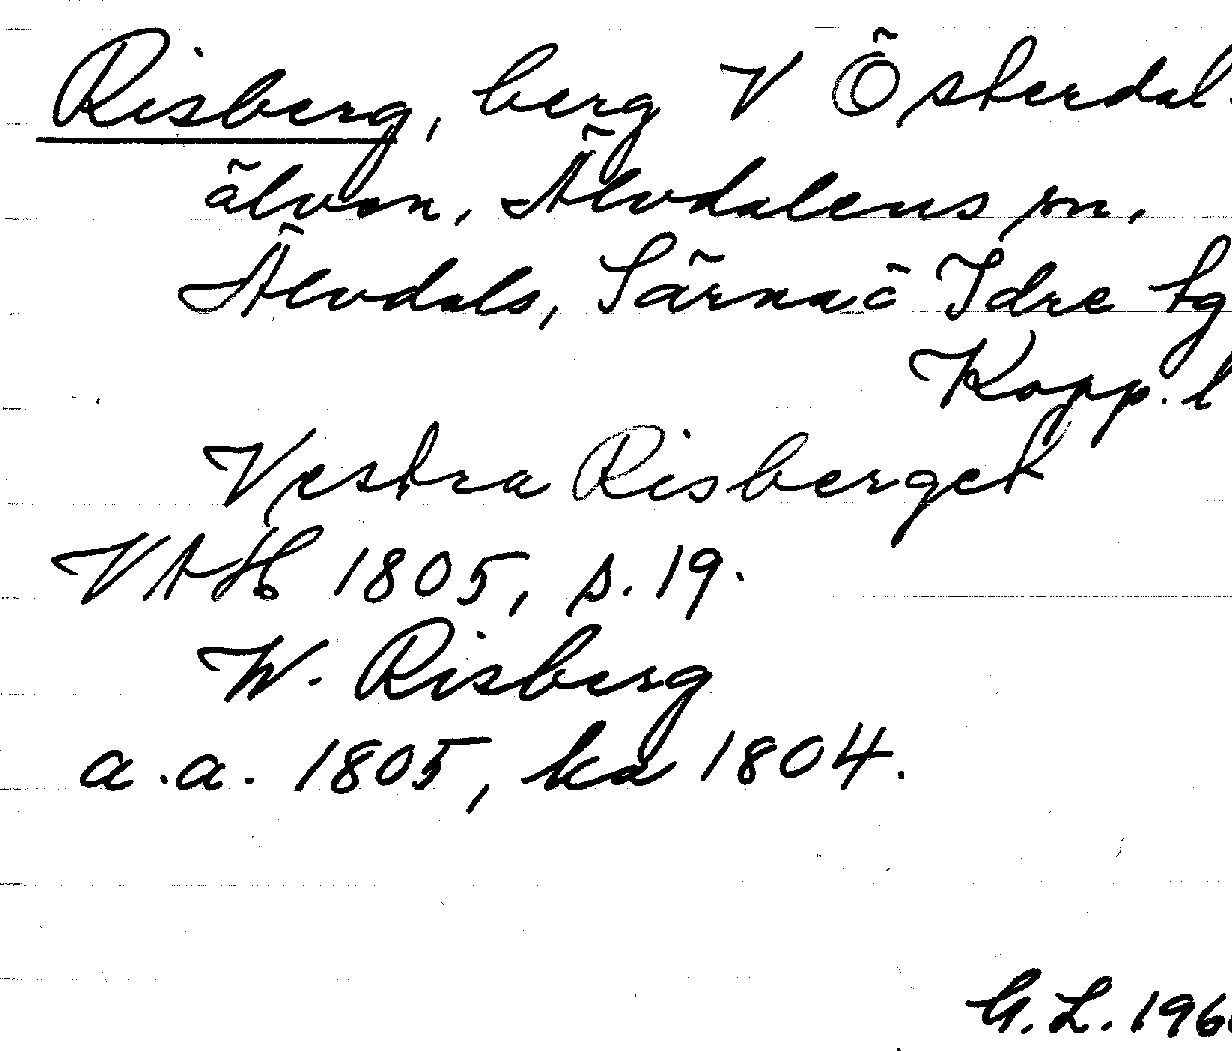 Risberg, berg V Österdal-
älven, Älvdalens sn,
Älvdals, Särna o Idre tg
Kopp. l
Vestra Risberget
VAH 1805, s. 19.
W. Risberg
a.a. 1805, ka 1804.
G.L. 196